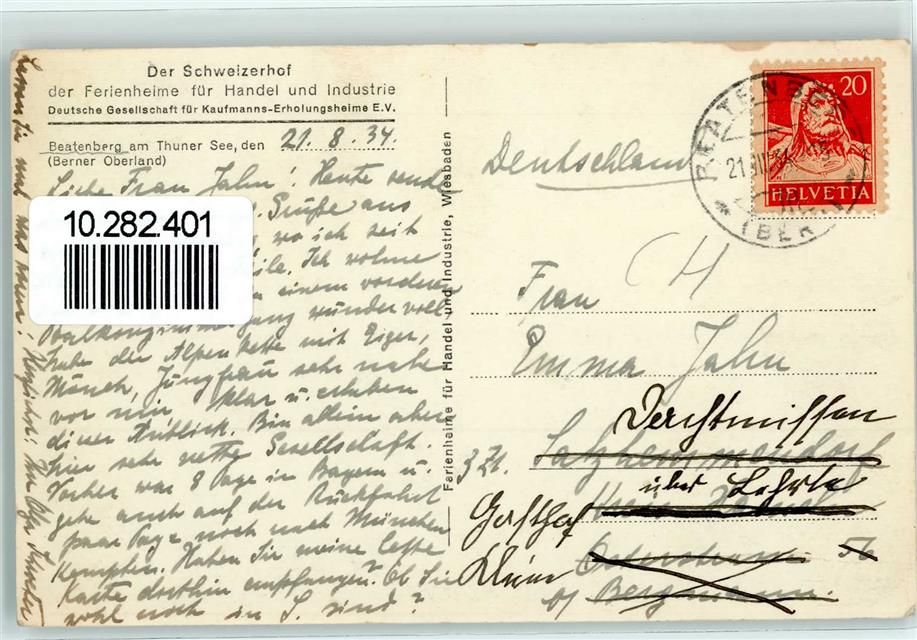 Der Schweizerhof
der Ferienheime für Handel und Industrie
Deutsche Gesellschaft für Kaufmanns-Erholungsheime E.V.
Beatenberg am Thuner See, den 21. 8. 34.
(Berner Oberland)
Liebe Frau Jahn! Heute sende
Grüße aus
wo ich seit
Ich wohne
einem vorderen
Balkonzimmer wundervoll
Alpenkette mit Eiger,
Mönch, Jungfrau sehr nahe
vor mir, klar u. erhaben
dieser Anblick. Bin allein aber
hier sehr nette Gesellschaft.
Vorher war 8 Tage in Bayern u.
gehe auch auf der Rückfahrt
paar Tage noch nach München
Kempten. Haben Sie meine letzte
Karte dorthin empfangen? Ob Sie
wohl noch in S. sind?
10.282.401
Ferienheime für Handel und Industrie, Wiesbaden
20
HELVETIA
BEATENBERG
21.VIII.34
(BERN)
Deutschland
Frau
Emma Jahn
z. Zt. Salzhemmendorf
über Lehrte
Gasthof
Osterstrasse 56
b/ Bergmann.